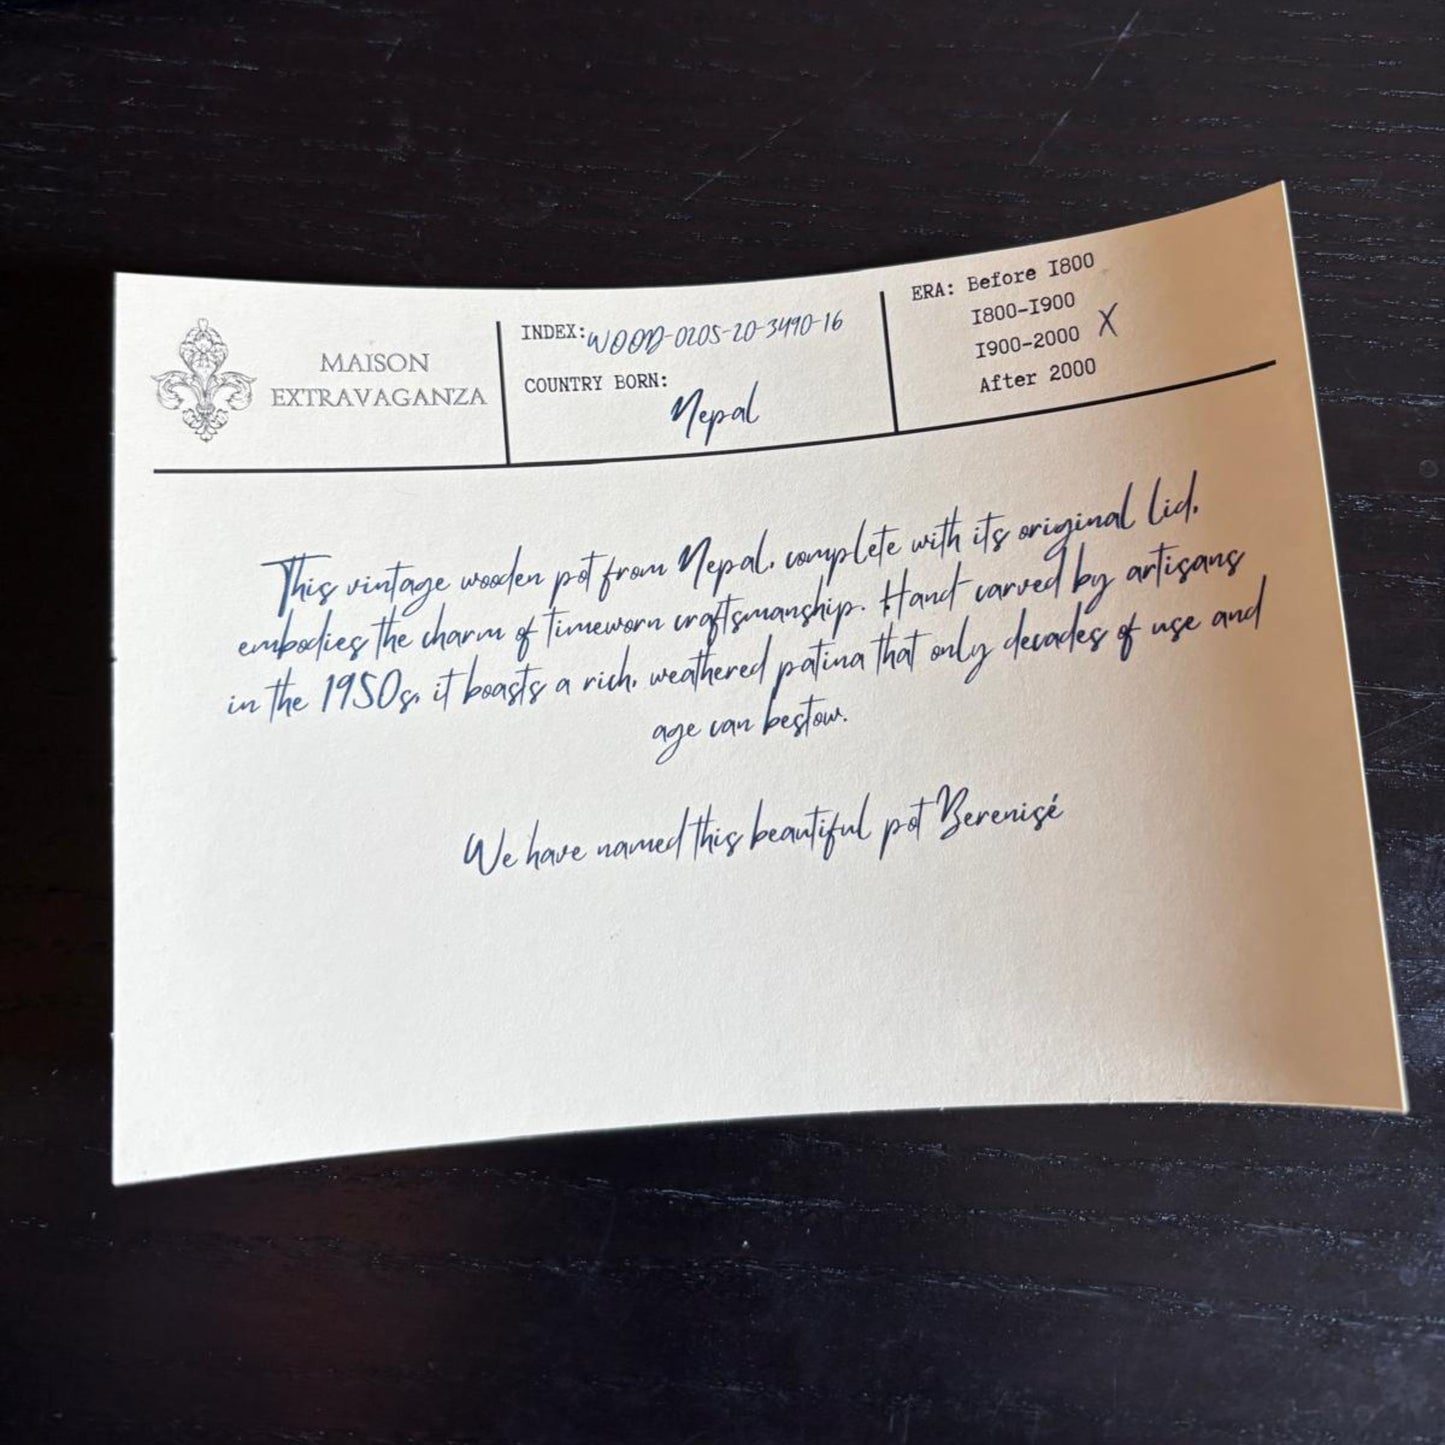 MAISON
EXTRAVAGANZA
INDEX: WOOD-0205-20-3490-16
COUNTRY BORN:
Nepal
ERA: Before I800
I800-I900
I900-2000 X
After 2000
This vintage wooden pot from Nepal, complete with its original lid,
embodies the charm of timeworn craftsmanship. Hand-carved by artisans
in the 1950s, it boasts a rich, weathered patina that only decades of use and
age can bestow.
We have named this beautiful pot Berenisé